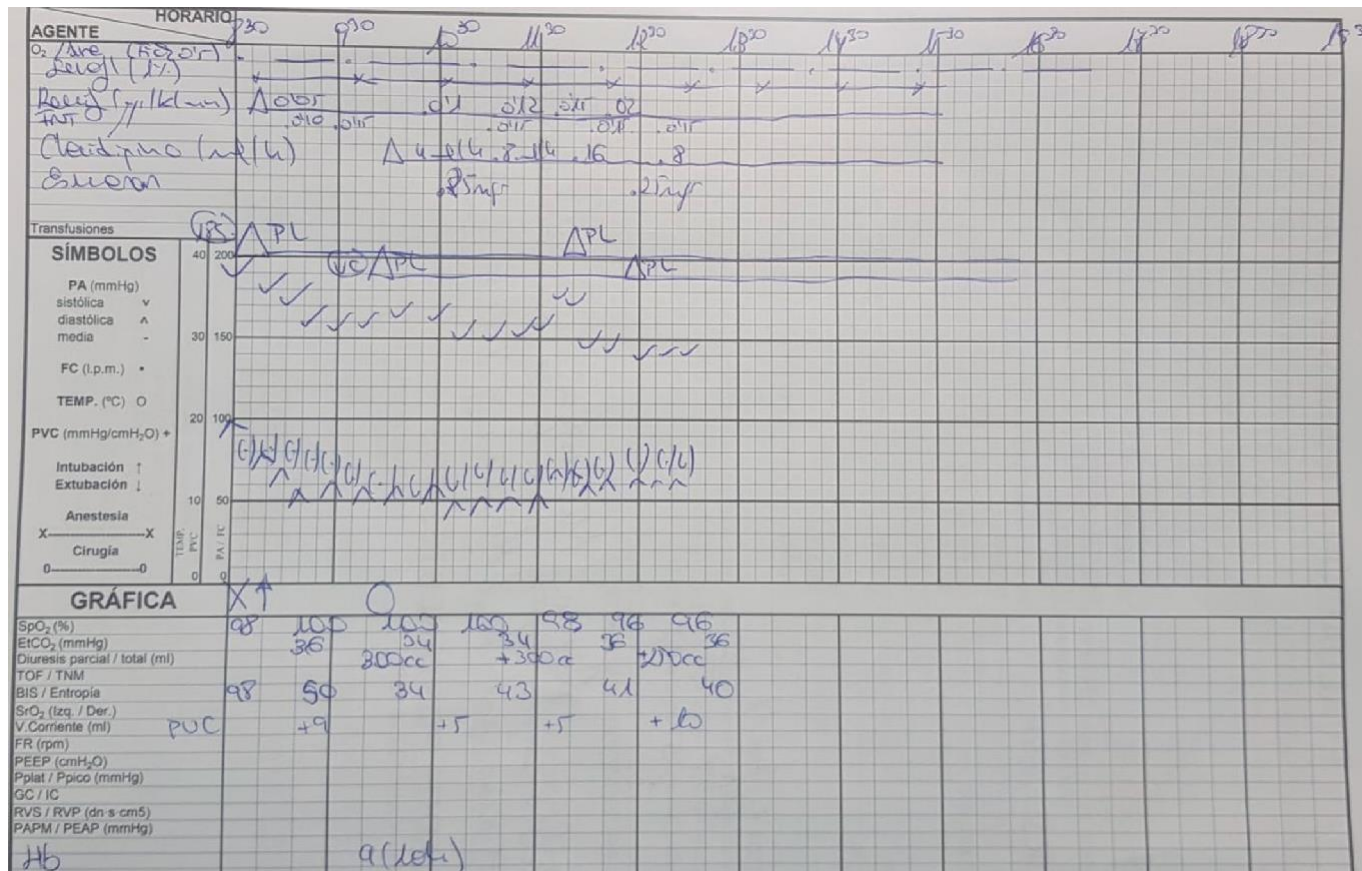 HORARIO
AGENTE
830 930 1030 1130 1230 1330 1430 1530 1630 1730 1830
O₂ /Aire (FiO2 0'5)
(1%)
Δ 0'05 0'1 0'12 0'15 0'2
TNT // 0'10 0'15 0'15 0'15
Clevidipino (ml/h) Δ 4 ml/h 8 ml/h 16 8
25mg
Transfusiones
Δ PL Δ PL
Δ PL Δ PL
SÍMBOLOS
PA (mmHg)
sistólica v
diastólica ʌ
media -
FC (l.p.m.) •
TEMP. (ºC) O
PVC (mmHg/cmH₂O) +
Intubación ↑
Extubación ↓
Anestesia
X--------------------X
Cirugía
0--------------------0
40 200
30 150
20 100
10 50
0 0
TEMP. PVC
PA / FC
GRÁFICA X ↑ O
SpO₂ (%) 98 100 100 100 98 96 96
EtCO₂ (mmHg) 36 34 34 36 36
Diuresis parcial / total (ml) 300cc +300cc +200cc
TOF / TNM
BIS / Entropía 98 50 34 43 41 40
SrO₂ (Izq. / Der.)
V.Corriente (ml) PVC +9 +5 +5 +10
FR (rpm)
PEEP (cmH₂O)
Pplat / Ppico (mmHg)
GC / IC
RVS / RVP (dn·s·cm5)
PAPM / PEAP (mmHg)
Hb 9